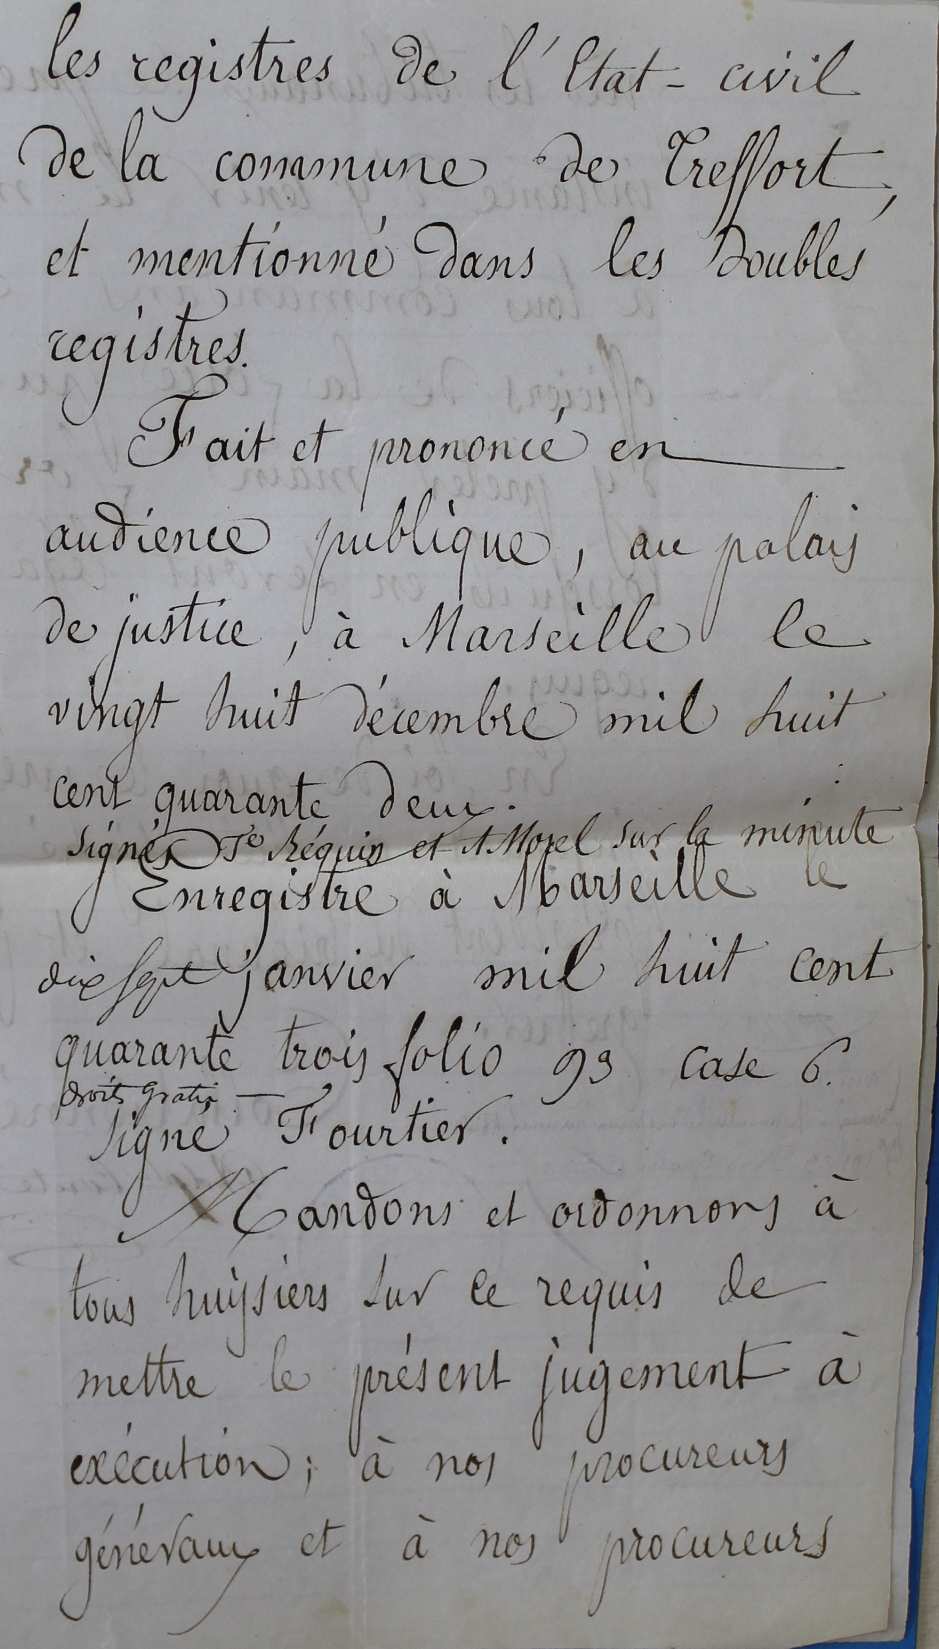 les registres de l'Etat-civil
de la commune de Treffort,
et mentionné dans les doubles
registres.
Fait et prononcé en
audience publique, au palais
de justice, à Marseille le
vingt huit décembre mil huit
cent quarante deux.
Signés Réquin et A Morel sur la minute
Enregistre à Marseille le
dix sept janvier mil huit cent
quarante trois folio 93 case 6.
droits gratis
Signé Fourtier.
Mandons et ordonnons à
tous huissiers sur ce requis de
mettre le présent jugement à
exécution; à nos procureurs
généraux et à nos procureurs